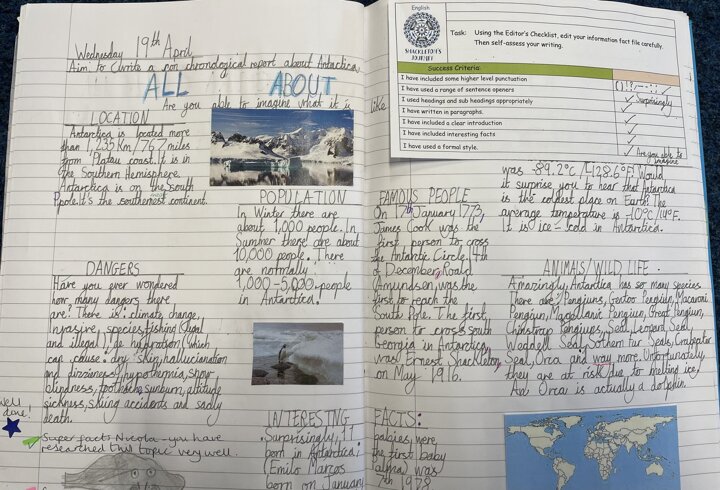 Wednesday 19th April
Aim: to write a non chronological report about Antarctica
ALL ABOUT
Are you able to imagine what it is like
LOCATION
Antarctica is located more
than 1,235 Km/767 miles
from Platau coast. It is in
the Southern Hemisphere.
Antarctica is on the south
pole. It's the southernest continent.
POPULATION
In Winter there are
about 1,000 people. In
Summer there are about
10,000 people. There
are normally
1,000-5,000 people
in Antarctica!
DANGERS
Have you ever wondered
how many dangers there
are? There is: climate change,
Invasive, species, fishing (legal
and illegal), de hydration (which
can cause: dry skin, hallucination
and dizziness), hypothemia, snow
blindness, toothache, sunburn, altitude
sickness, skiing accidents and sadly
death.
Well
done!
Super facts Nicola - you have
researched this topic very well.
INTERESTING
Surprisingly, 11
born in Antarctica;
Emilo Marcos
born on January
English
SHACKLETON'S
JOURNEY
Task: Using the Editor's Checklist, edit your information fact file carefully.
Then self-assess your writing.
Success Criteria:
I have included some higher level punctuation
I have used a range of sentence openers
Surprisingly
I have used headings and sub headings appropriately
I have written in paragraphs.
I have included a clear introduction
I have included interesting facts
I have used a formal style.
Are you able to
imagine
FAMOUS PEOPLE
On 17th January 1773,
James Cook was the
first person to cross
the Antarctic Circle. 14th
of December, Roald
Amundsen was the
first to reach the
South Pole. The first
person to cross south
Georgia in Antarctica
was Ernest Shackleton
on May 1916.
was -89.2°C/-128.6°F. Would
it surprise you to hear that Antarctica
is the coldest place on Earth? The
average temperature is -10°C/14°F.
It is ice-cold in Antarctica.
ANIMALS/WILD LIFE
Amazingly, Antarctica has so many species.
There are: Penguins, Gentoo Penguin, Macaroni
Penguin, Magellanic Penguin, Great Penguin,
Chinstrap Penguins, Seal, Leopard Seal,
Weddell Seal, Sothern Fur Seals, Crabeater
Seal, Orca and way more. Unfortunately,
they are at risk due to melting ice.
An Orca is actually a dolphin.
FACTS:
babies were
the first baby
Palma was
7th 1978